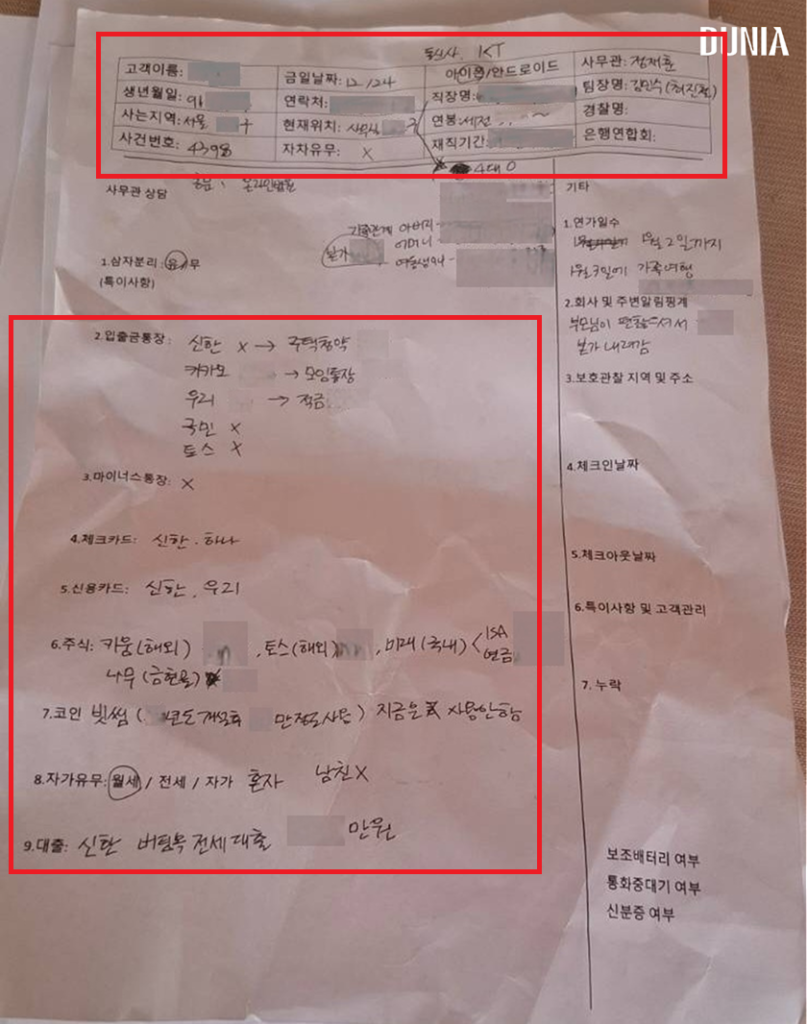 DUNIA
통신사 KT
고객이름: 금일날짜: 12/24 아이폰/안드로이드 사무관: 정재훈
생년월일: 91 연락처: 직장명: 팀장명: 김민수(최진철)
사는지역: 서울 구 현재위치: 사무실 연봉: 세전 경찰명:
사건번호: 4398 자차유무: X 재직기간: 은행연합회:
4대 O
사무관 상담 공문: 온라인법원 기타
가족관계 아버지
본가 어머니
여동생
1.삼자분리: 유/무
(특이사항)
1.연가일수
1월 2일까지
1월 3일에 가족여행
2.회사 및 주변알림핑계
부모님이 편찮으셔서
본가 내려감
3.보호관찰 지역 및 주소
4.체크인날짜
5.체크아웃날짜
6.특이사항 및 고객관리
7. 누락
보조배터리 여부
통화중대기 여부
신분증 여부
2.입출금통장: 신한 X → 주택청약
카카오 → 모임통장
우리 → 적금
국민 X
토스 X
3.마이너스통장: X
4.체크카드: 신한. 하나
5.신용카드: 신한, 우리
6.주식: 키움(해외) , 토스(해외) , 미래(국내) < ISA
연금
나무(금현물)
7.코인 빗썸( 년도 개설후 만정도사용) 지금은 사용안함
8.자가유무: 월세 / 전세 / 자가 혼자 남친X
9.대출: 신한 버팀목 전세대출 만원